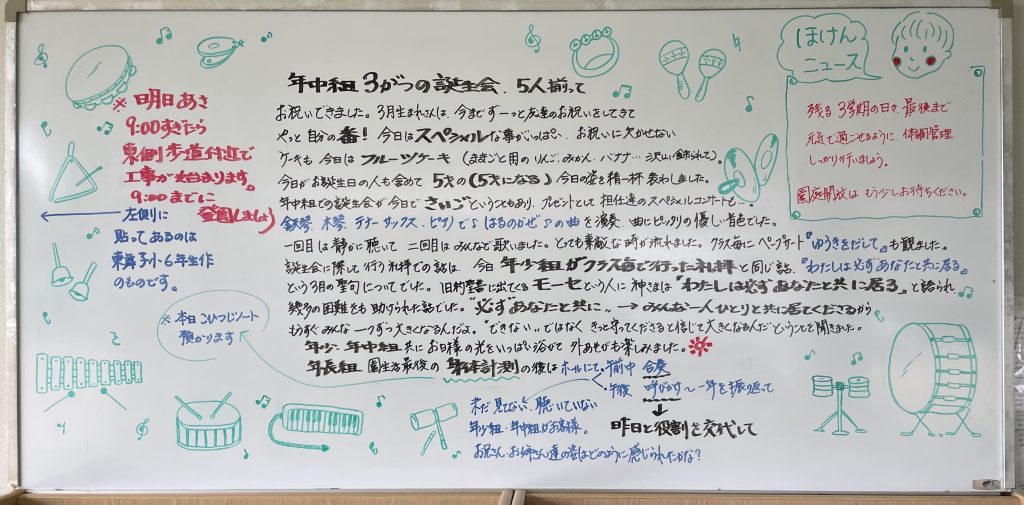 ※明日あさ
9:00すぎたら
東側歩道付近で
工事が始まります。
9:00までに
登園しましょう
左側に
貼ってあるのは
小6年生作
のものです。
※本日こひつじノート
預かります
年中組 3がつの誕生会、5人揃って
お祝いできました。3月生まれさんは、今までずーっと友達のお祝いをしてきて
やっと自分の番！今日はスペシャルな事がいっぱい、お祝いに欠かせない
ケーキも今日はフルーツケーキ（ままごと用のりんご、みかん、バナナ…沢山飾られて）。
今日がお誕生日の人も含めて 5才の（5才になる）今日の姿を精一杯表わしました。
年中組での誕生会が今日でさいごということもあり、プレゼントとして担任達のスペシャルコンサートと…、
鉄琴、木琴、テナーサックス、ピアノで♪はるのかぜ♪の曲を演奏、曲にピッタリの優しい音色でした。
一回目は静かに聴いて 二回目はみんなで歌いました。とっても素敵な時が流れました。クラス毎にペープサート『ゆうきをだして』も観ました。
誕生会に際して行う礼拝での話は、今日 年少組がクラス毎で行った礼拝と同じ話、『わたしは必ずあなたと共に居る』
という3月の聖句についてでした。旧約聖書に出てくるモーセという人に神さまは“わたしは必ずあなたと共に居る”と語られ
幾多の困難をも助けられた話でした。“必ず”あなたと共に。→みんな一人ひとりと共に居てくださるから
もうすぐみんな一つずつ大きくなるんだよ。“できない„ではなくきっと守ってくださると信じて大きくなるんだということを聞きました。
年少、年中組共にお日様の光をいっぱい浴びて 外あそびも楽しみました。
年長組 園生活最後の身体計測の後はホールにて・午前中 合奏
・午後 呼びかけ〜一年を振り返って
未だ見てない、聴いていない
年少組・年中組がお客様。
昨日と役割を交代して
お兄さん、お姉さん達の姿はどのように感じられたかな？
ほけん
ニュース
残る3学期の日々、最後まで
元気で過ごせるように、体調管理
しっかり行いましょう。
園庭開放はもう少しお待ちください。